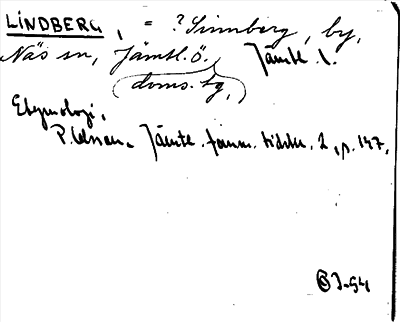 LINDBERG, = ? Sinnberg, by,
Näs sn, Jämtl. ö. Jämtl. l.
doms. tg,
Etymologi,
P. Olsson, Jämtl. fornm. tidskr. 2, p. 147,